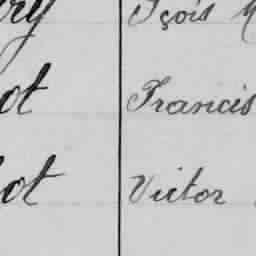 ry Fçois
ot Francis
ot Victor